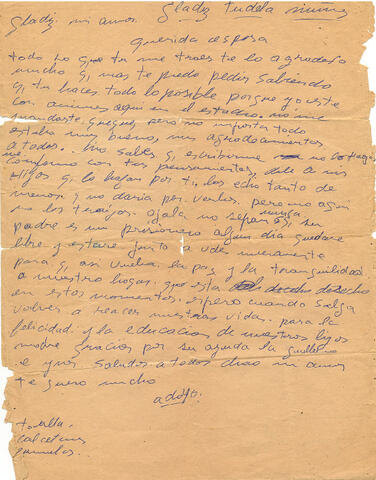 Gladiz Tudela nunez
Gladiz mi amor.
querida esposa
todo lo que tu me traes te lo agradesco
mucho q, mas te puedo pedir sabiendo
q, tu haces todo lo posible porque yo este
con animos aqui en el estudio. no me
mandaste queque, pero no importa todo
estaba muy bueno, mis agradecimientos
a todos. tu sabes q, escribirme no lo hagas
me conformo con tus pensamientos, dile a mis
Hijos q, lo hagan por ti, los echo tanto de
menos, y no daria por verlos, pero no aqui
no los traigas. ojala no sepan nunca q, su
padre es un prisionero algun dia quedare
libre, y estare junto a udes. nuevamente
para q, asi vuelva la paz y la tranquilidad
a nuestro hogar, que esta desecho
en estos momentos. espero cuando salga
volver a reacer nuestras vidas. para la
felicidad y la educacion de nuestros hijos
madre gracias por su ayuda la
e ynos saludos a todos chao mi amor
te quero mucho
adolfo.
toalla.
calcetines